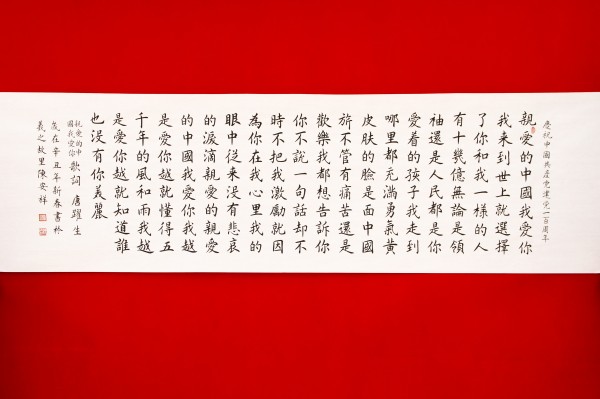 慶祝中國共產党建党一百周年
親愛的中國我愛你
我来到世上就選擇
了你和我一樣的人
有十幾億無論是領
袖還是人民都是你
愛着的孩子我走到
哪里都充滿勇氣黄
皮肤的臉是面中國
旂不管有痛苦還是
歡樂我都想告訴你
你不説一句話却不
時不把我激勵就因
為你在我心里我的
眼中從来没有悲哀
的淚滴親愛的親愛
的中國我愛你我越
是愛你越就懂得五
千年的風和雨我越
是愛你越就知道誰
也没有你美麗
親愛的中
國我愛你 歌詞 唐躍生
歲在辛丑年新春書於
羲之故里陳安祥